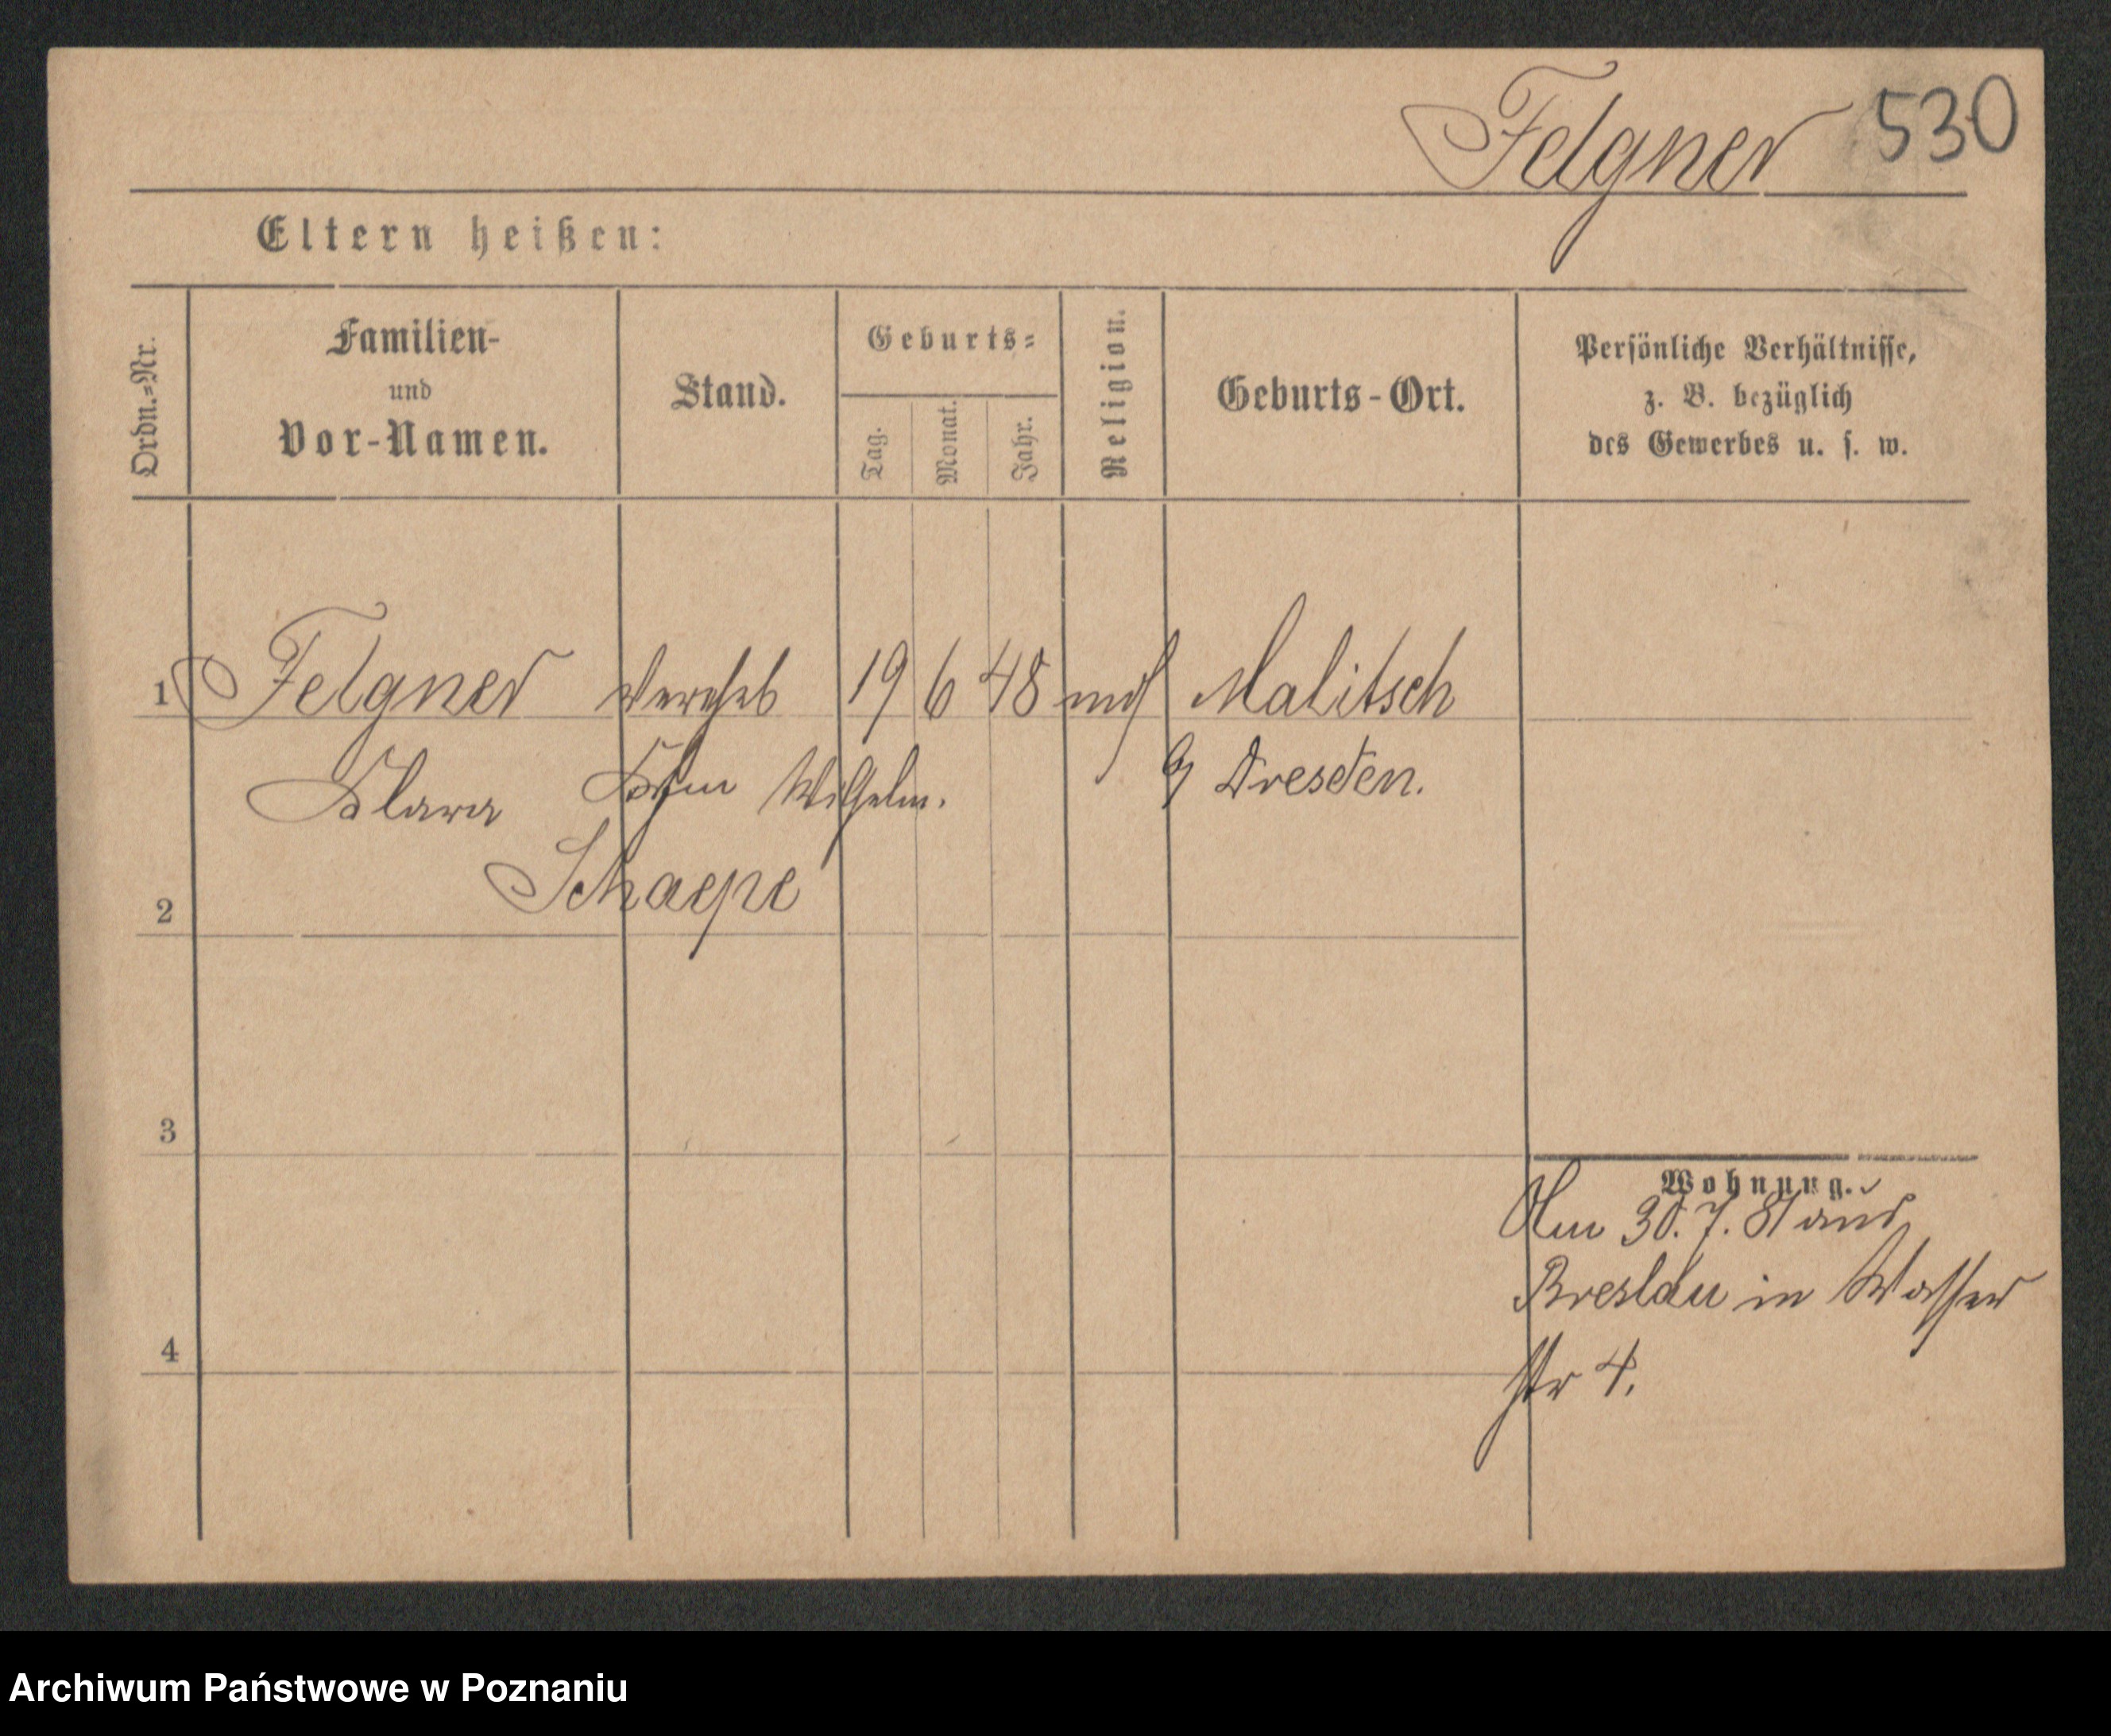 Felgner 530
Eltern heißen:
Ordn.=Nr.
Familien-
und
Vor-Namen.
Stand.
Geburts=
Tag.
Monat.
Jahr.
Religion.
Geburts-Ort.
Persönliche Verhältnisse,
z. B. bezüglich
des Gewerbes u. s. w.
1 Felgner 19 6 48 Malitsch
Klara Wilhelm. Dresden.
Schaepe
2
3
Wohnung.
Am 30. 7. 81 aus
Breslau in Wasser
str 4.
4
Archiwum Państwowe w Poznaniu